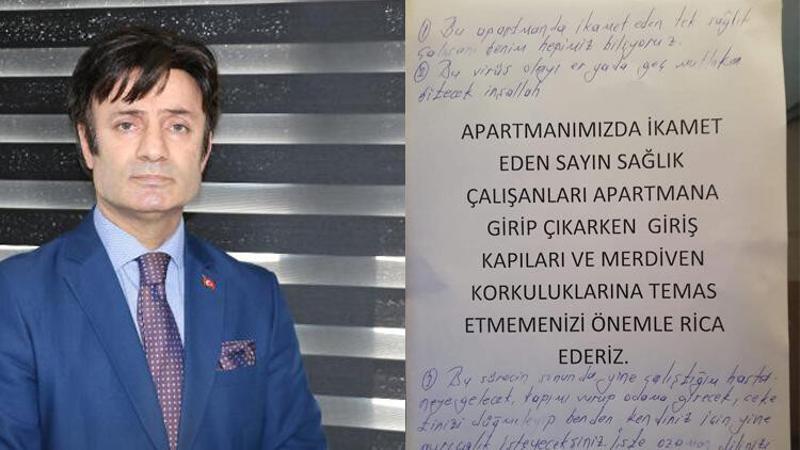 ① Bu apartmanda ikamet eden tek sağlık
çalışanı benim hepimiz biliyoruz.
② Bu virüs olayı er yada geç mutlaka
bitecek inşallah
APARTMANIMIZDA İKAMET
EDEN SAYIN SAĞLIK
ÇALIŞANLARI APARTMANA
GİRİP ÇIKARKEN GİRİŞ
KAPILARI VE MERDİVEN
KORKULUKLARINA TEMAS
ETMEMENİZİ ÖNEMLE RİCA
EDERİZ.
③ Bu sürecin sonunda yine çalıştığım hasta-
neye gelecek, kapımı vurup odama girecek, ceke
tinizi düğmeleyip benden kendiniz için yine
isteyeceksiniz. İşte o zaman